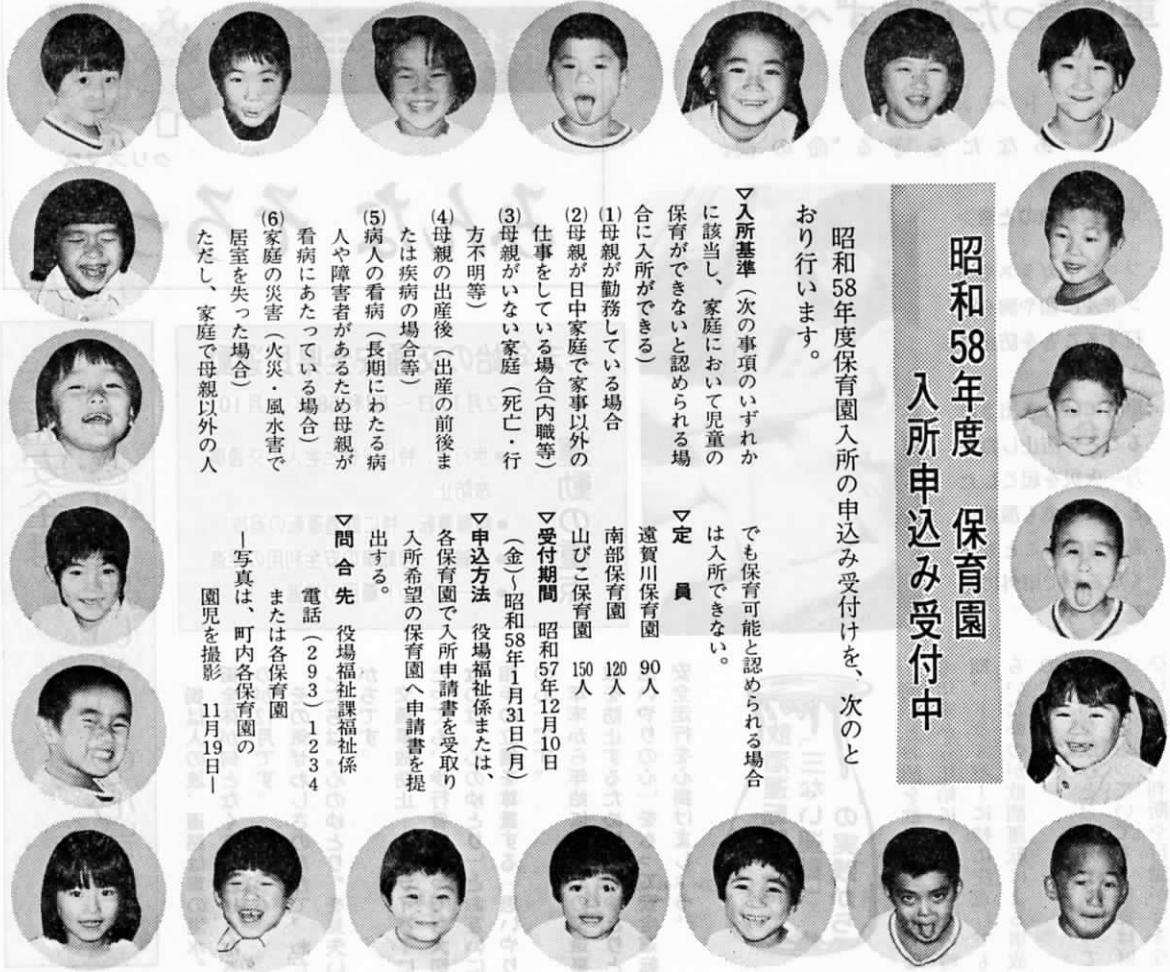 昭和58年度 保育園
入所申込み受付中
昭和58年度保育園入所の申込み受付けを、次のと
おり行います。
▽入所基準（次の事項のいずれか
に該当し、家庭において児童の
保育ができないと認められる場
合に入所ができる）
(1)母親が勤務している場合
(2)母親が日中家庭で家事以外の
仕事をしている場合（内職等）
(3)母親がいない家庭（死亡・行
方不明等）
(4)母親の出産後（出産の前後ま
たは疾病の場合等）
(5)病人の看病（長期にわたる病
人や障害者があるため母親が
看病にあたっている場合）
(6)家庭の災害（火災・風水害で
居室を失った場合）
ただし、家庭で母親以外の人
でも保育可能と認められる場合
は入所できない。
▽定　員
遠賀川保育園　90人
南部保育園　120人
山びこ保育園　150人
▽受付期間　昭和57年12月10日
（金）～昭和58年1月31日（月）
▽申込方法　役場福祉係または、
各保育園で入所申請書を受取り
入所希望の保育園へ申請書を提
出する。
▽問合先　役場福祉課福祉係
電話（293）1234
または各保育園
―写真は、町内各保育園の
園児を撮影　11月19日―